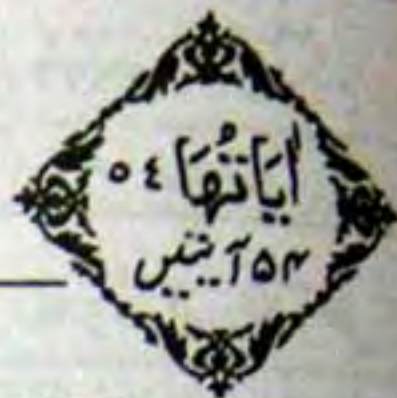 اٰيَاتُهَا ٥٤
۵۴ آیتیں